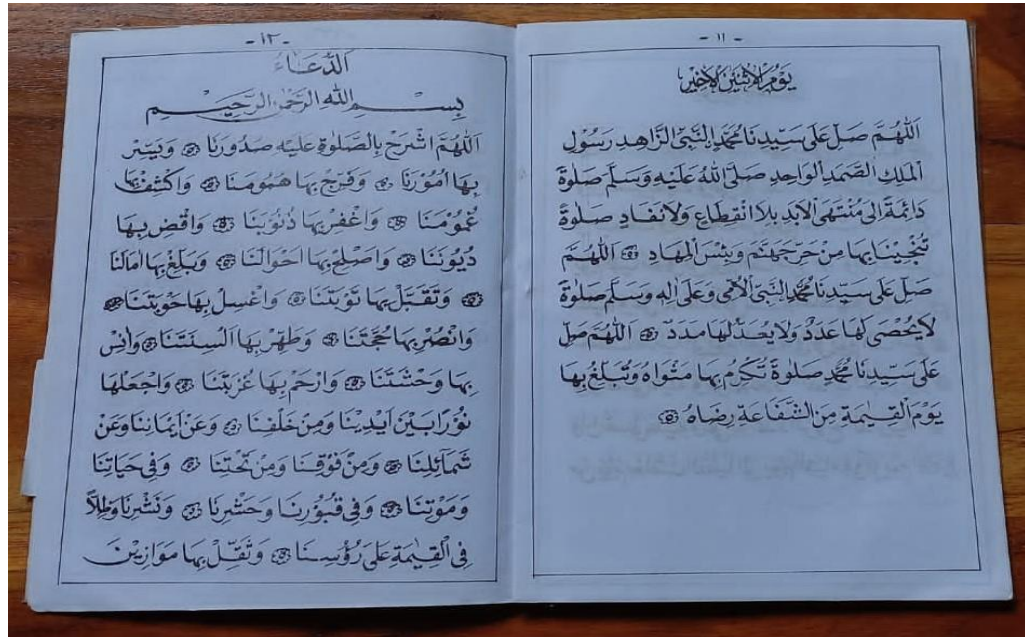 - ١١ -
يَوْمُ الْاِثْنَيْنِ الْاَخِيْرِ
اَللّٰهُمَّ صَلِّ عَلٰى سَيِّدِنَا مُحَمَّدِ اِلنَّبِيِّ الزَّاهِدِ رَسُوْلِ
الْمَلِكِ الصَّمَدِ الْوَاحِدِ صَلَّى اللهُ عَلَيْهِ وَسَلَّمَ صَلٰوةً
دَائِمَةً اِلٰى مُنْتَهَى الْاَبَدِ بِلَا انْقِطَاعٍ وَلَا نَفَادٍ صَلٰوةً
تُنْجِيْنَا بِهَا مِنْ حَرِّ جَهَنَّمَ وَبِئْسَ الْمِهَادِ ۞ اَللّٰهُمَّ
صَلِّ عَلٰى سَيِّدِنَا مُحَمَّدِ اِلنَّبِيِّ الْاُمِّيِّ وَعَلٰى اٰلِهِ وَسَلِّمْ صَلٰوةً
لَا يُحْصٰى لَهَا عَدَدٌ وَلَا يُعَدُّ لَهَا مَدَدٌ ۞ اَللّٰهُمَّ صَلِّ
عَلٰى سَيِّدِنَا مُحَمَّدٍ صَلٰوةً تُكْرِمُ بِهَا مَثْوَاهُ وَتُبَلِّغُ بِهَا
يَوْمَ الْقِيٰمَةِ مِنَ الشَّفَاعَةِ رِضَاهُ ۞
- ١٢ -
اَلدُّعَـاءُ
بِسْـمِ اللهِ الرَّحْمٰنِ الرَّحِيْـمِ
اَللّٰهُمَّ اشْرَحْ بِالصَّلٰوةِ عَلَيْهِ صُدُوْرَنَا ۞ وَيَسِّرْ
بِهَا اُمُوْرَنَا ۞ وَفَرِّجْ بِهَا هُمُوْمَنَا ۞ وَاكْشِفْ بِهَا
غُمُوْمَنَا ۞ وَاغْفِرْ بِهَا ذُنُوْبَنَا ۞ وَاقْضِ بِهَا
دُيُوْنَنَا ۞ وَاصْلِحْ بِهَا اَحْوَالَنَا ۞ وَبَلِّغْ بِهَا اٰمَالَنَا
۞ وَتَقَبَّلْ بِهَا تَوْبَتَنَا ۞ وَاغْسِلْ بِهَا حَوْبَتَنَا ۞
وَانْصُرْ بِهَا حُجَّتَنَا ۞ وَطَهِّرْ بِهَا اَلْسِنَتَنَا ۞ وَاٰنِسْ
بِهَا وَحْشَتَنَا ۞ وَارْحَمْ بِهَا غُرْبَتَنَا ۞ وَاجْعَلْهَا
نُوْرًا بَيْنَ اَيْدِيْنَا وَمِنْ خَلْفِنَا ۞ وَعَنْ اَيْمَانِنَا وَعَنْ
شَمَائِلِنَا ۞ وَمِنْ فَوْقِنَا وَمِنْ تَحْتِنَا ۞ وَفِيْ حَيَاتِنَا
وَمَوْتِنَا ۞ وَفِيْ قُبُوْرِنَا وَحَشْرِنَا ۞ وَنَشْرِنَا وَظِلًّا
فِي الْقِيٰمَةِ عَلٰى رُؤُسِنَا ۞ وَثَقِّلْ بِهَا مَوَازِيْنَ